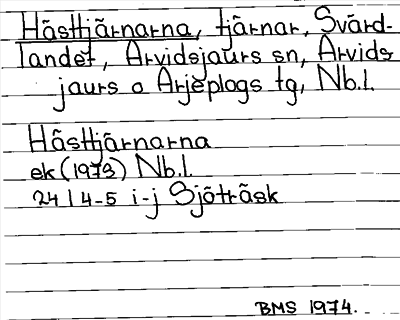 Hästtjärnarna, tjärnar, Svärd-
landet, Arvidsjaurs sn, Arvids
jaurs o Arjeplogs tg, Nb.l.
Hästtjärnarna
ek (1973) Nb.l.
24 I 4-5 i-j Sjöträsk
BMS 1974.